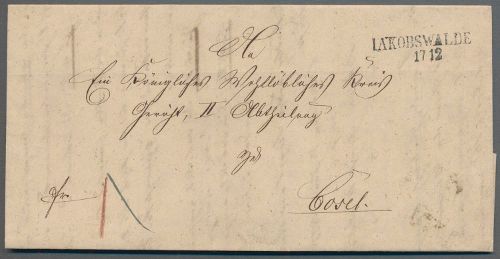 IAKOBSWALDE
17 12
An
Ein Königliches Wohllöbliches Kreis
Gericht, II Abtheilung
zu
Cosel.